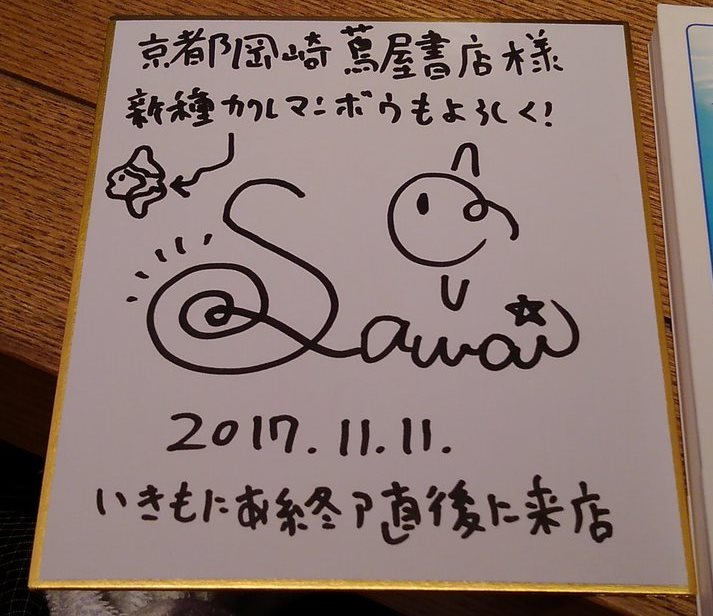 京都岡崎 蔦屋書店様
新種カクレマンボウもよろしく!
Sawai
2017.11.11.
いきもにあ終了直後に来店